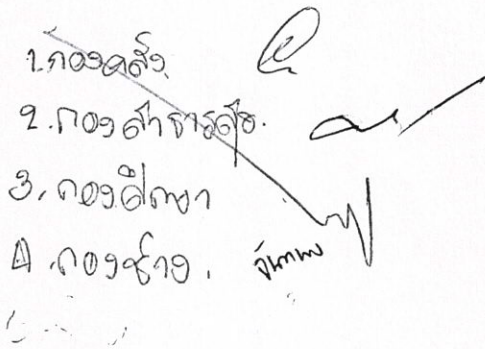 1.กองคลัง.
2.กองสาธารสุข.
3.กองศึกษา
4.กองช่าง.